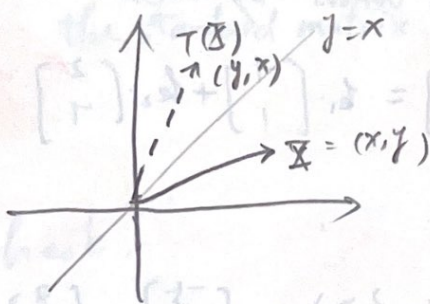 T(x̄)
y=x
(y,x)
x̄ = (x,y)